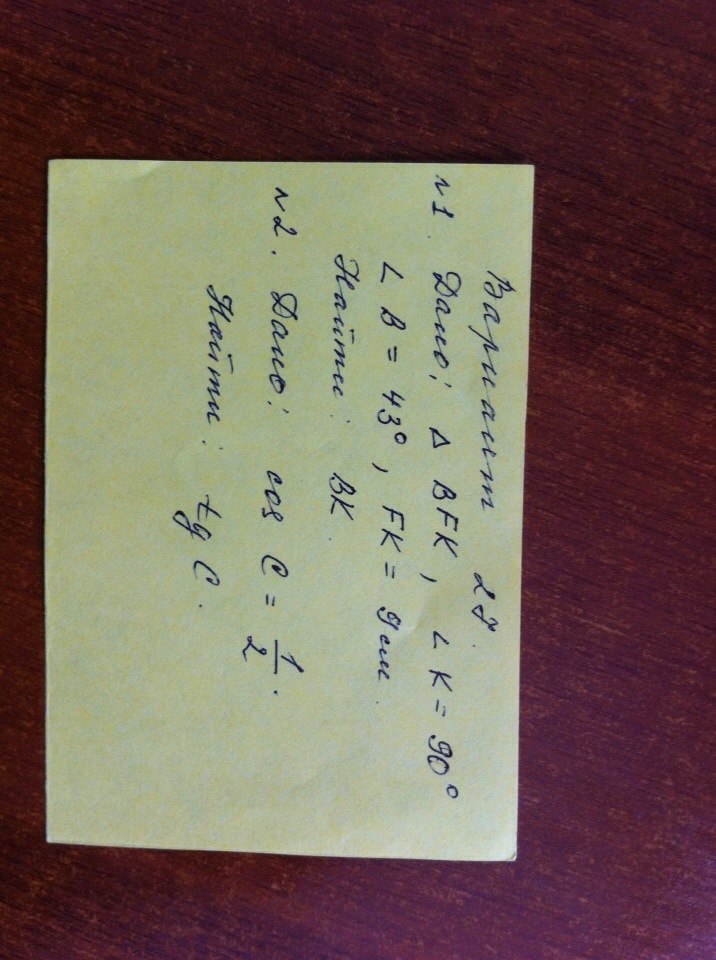 Вариант 27
N1. Дано: Δ BFK, ∠ K = 90°
∠ B = 43°, FK = 9 см.
Найти: BK
N2. Дано: cos C = 1/2.
Найти: tg C.